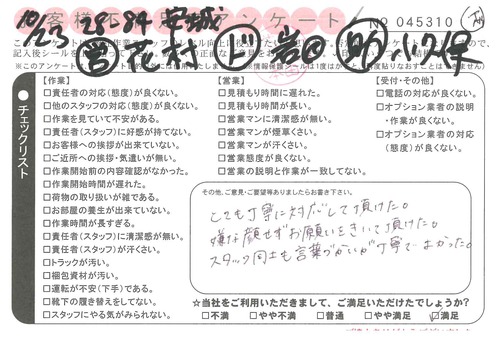 お客様アンケート！
NO 045310
10/23 28-84 安城
㊂花村 ㋣岩田 ㊇小久保
（※このアンケート
チェックリスト
【作業】
□責任者の対応(態度)が良くない。
□他のスタッフの対応(態度)が良くない。
□作業を見ていて不安がある。
□責任者(スタッフ)に好感が持てない。
□お客様への挨拶が出来ていない。
□ご近所への挨拶・気遣いが無い。
□作業開始前の内容確認がなかった。
□作業開始時間が遅れた。
□荷物の取り扱いが雑である。
□お部屋の養生が出来ていない。
□作業時間が長すぎる。
□責任者(スタッフ)に清潔感が無い。
□責任者(スタッフ)が汗くさい。
□トラックが汚い。
□梱包資材が汚い。
□運転が不安(下手)である。
□靴下の履き替えをしてない。
□スタッフにやる気がみられない。
【営業】
□見積もり時間に遅れた。
□見積もり時間が長い。
□営業マンに清潔感が無い。
□営業マンが煙草くさい。
□営業マンが汗くさい。
□営業態度が良くない。
□営業の説明と作業が一致してない。
【受付・その他】
□電話の対応が良くない。
□オプション業者の説明
・作業が良くない。
□オプション業者の対応
(態度)が良くない。
その他、ご意見・ご要望等ありましたらお書き下さい。
とても丁寧に対応して頂けた。
嫌な顔せずお願いをきいて頂けた。
スタッフ同士も言葉づかいが丁寧でよかった。
☆当社をご利用いただきまして、ご満足いただけたでしょうか？
□不満 □やや不満 □普通 □やや満足 ☑満足